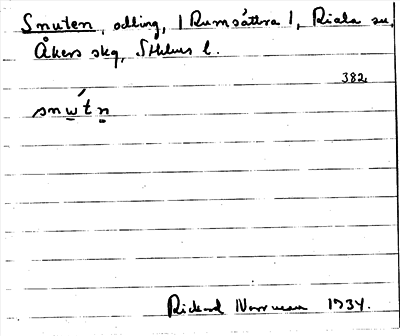 Snuten, odling, / Rumsättra /, Riala sn,
Åkers skg, Sthlms l.
382.
snẃt n
Rickard Norrman 1934.